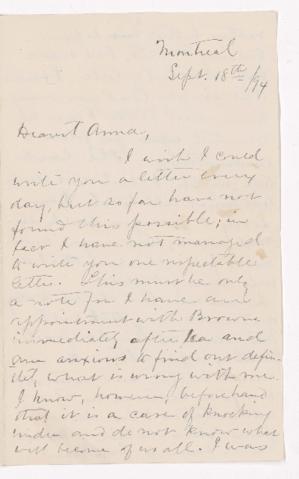 Montreal
Sept. 18th/94
Dearest Anna,
I wish I could
write you a letter every
day, but so far have not
found this possible; in
fact I have not managed
to write you one respectable
letter. This must be only
a note for I have an
appointment with Browne
immediately after tea and
am anxious to find out defin-
itely what is wrong with me.
I know, however, beforehand
that it is a case of knocking
under and do not know what
will become of us all. I was